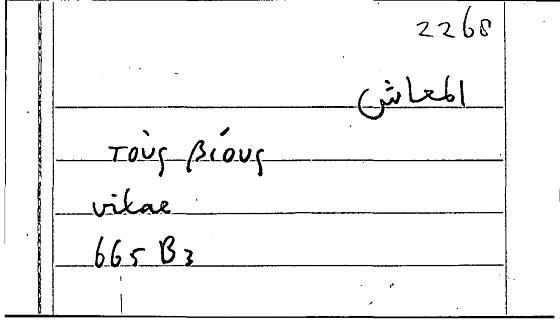 2268
المعاش
τοὺς βίους
vitae
665 B3